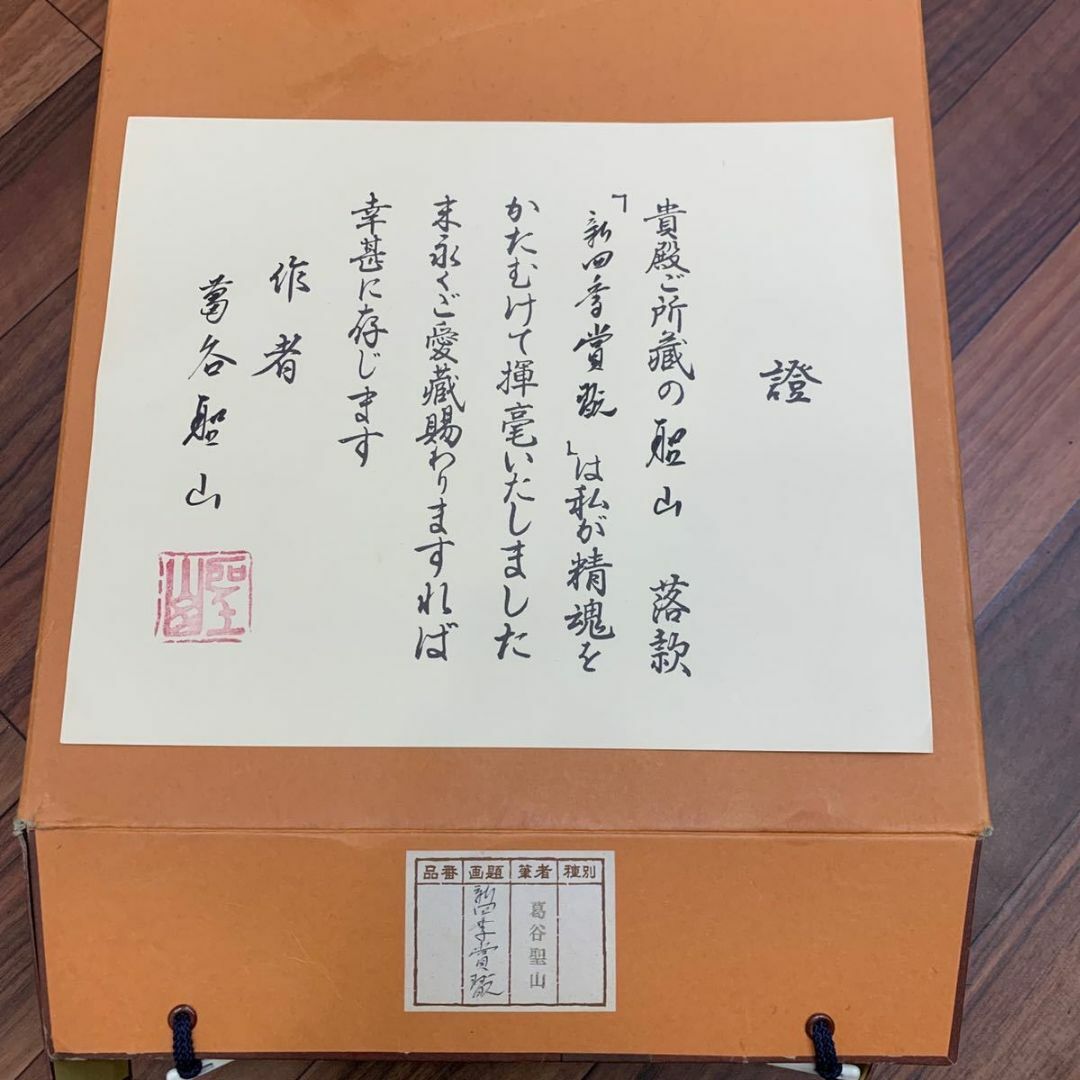 證
貴殿ご所藏の聖山 落款
「新四季賞翫」は私が精魂を
かたむけて揮毫いたしました
末永くご愛藏賜わりますれば
幸甚に存じます
作者
葛谷聖山
種別
筆者
葛谷聖山
画題
新四季賞翫
品番